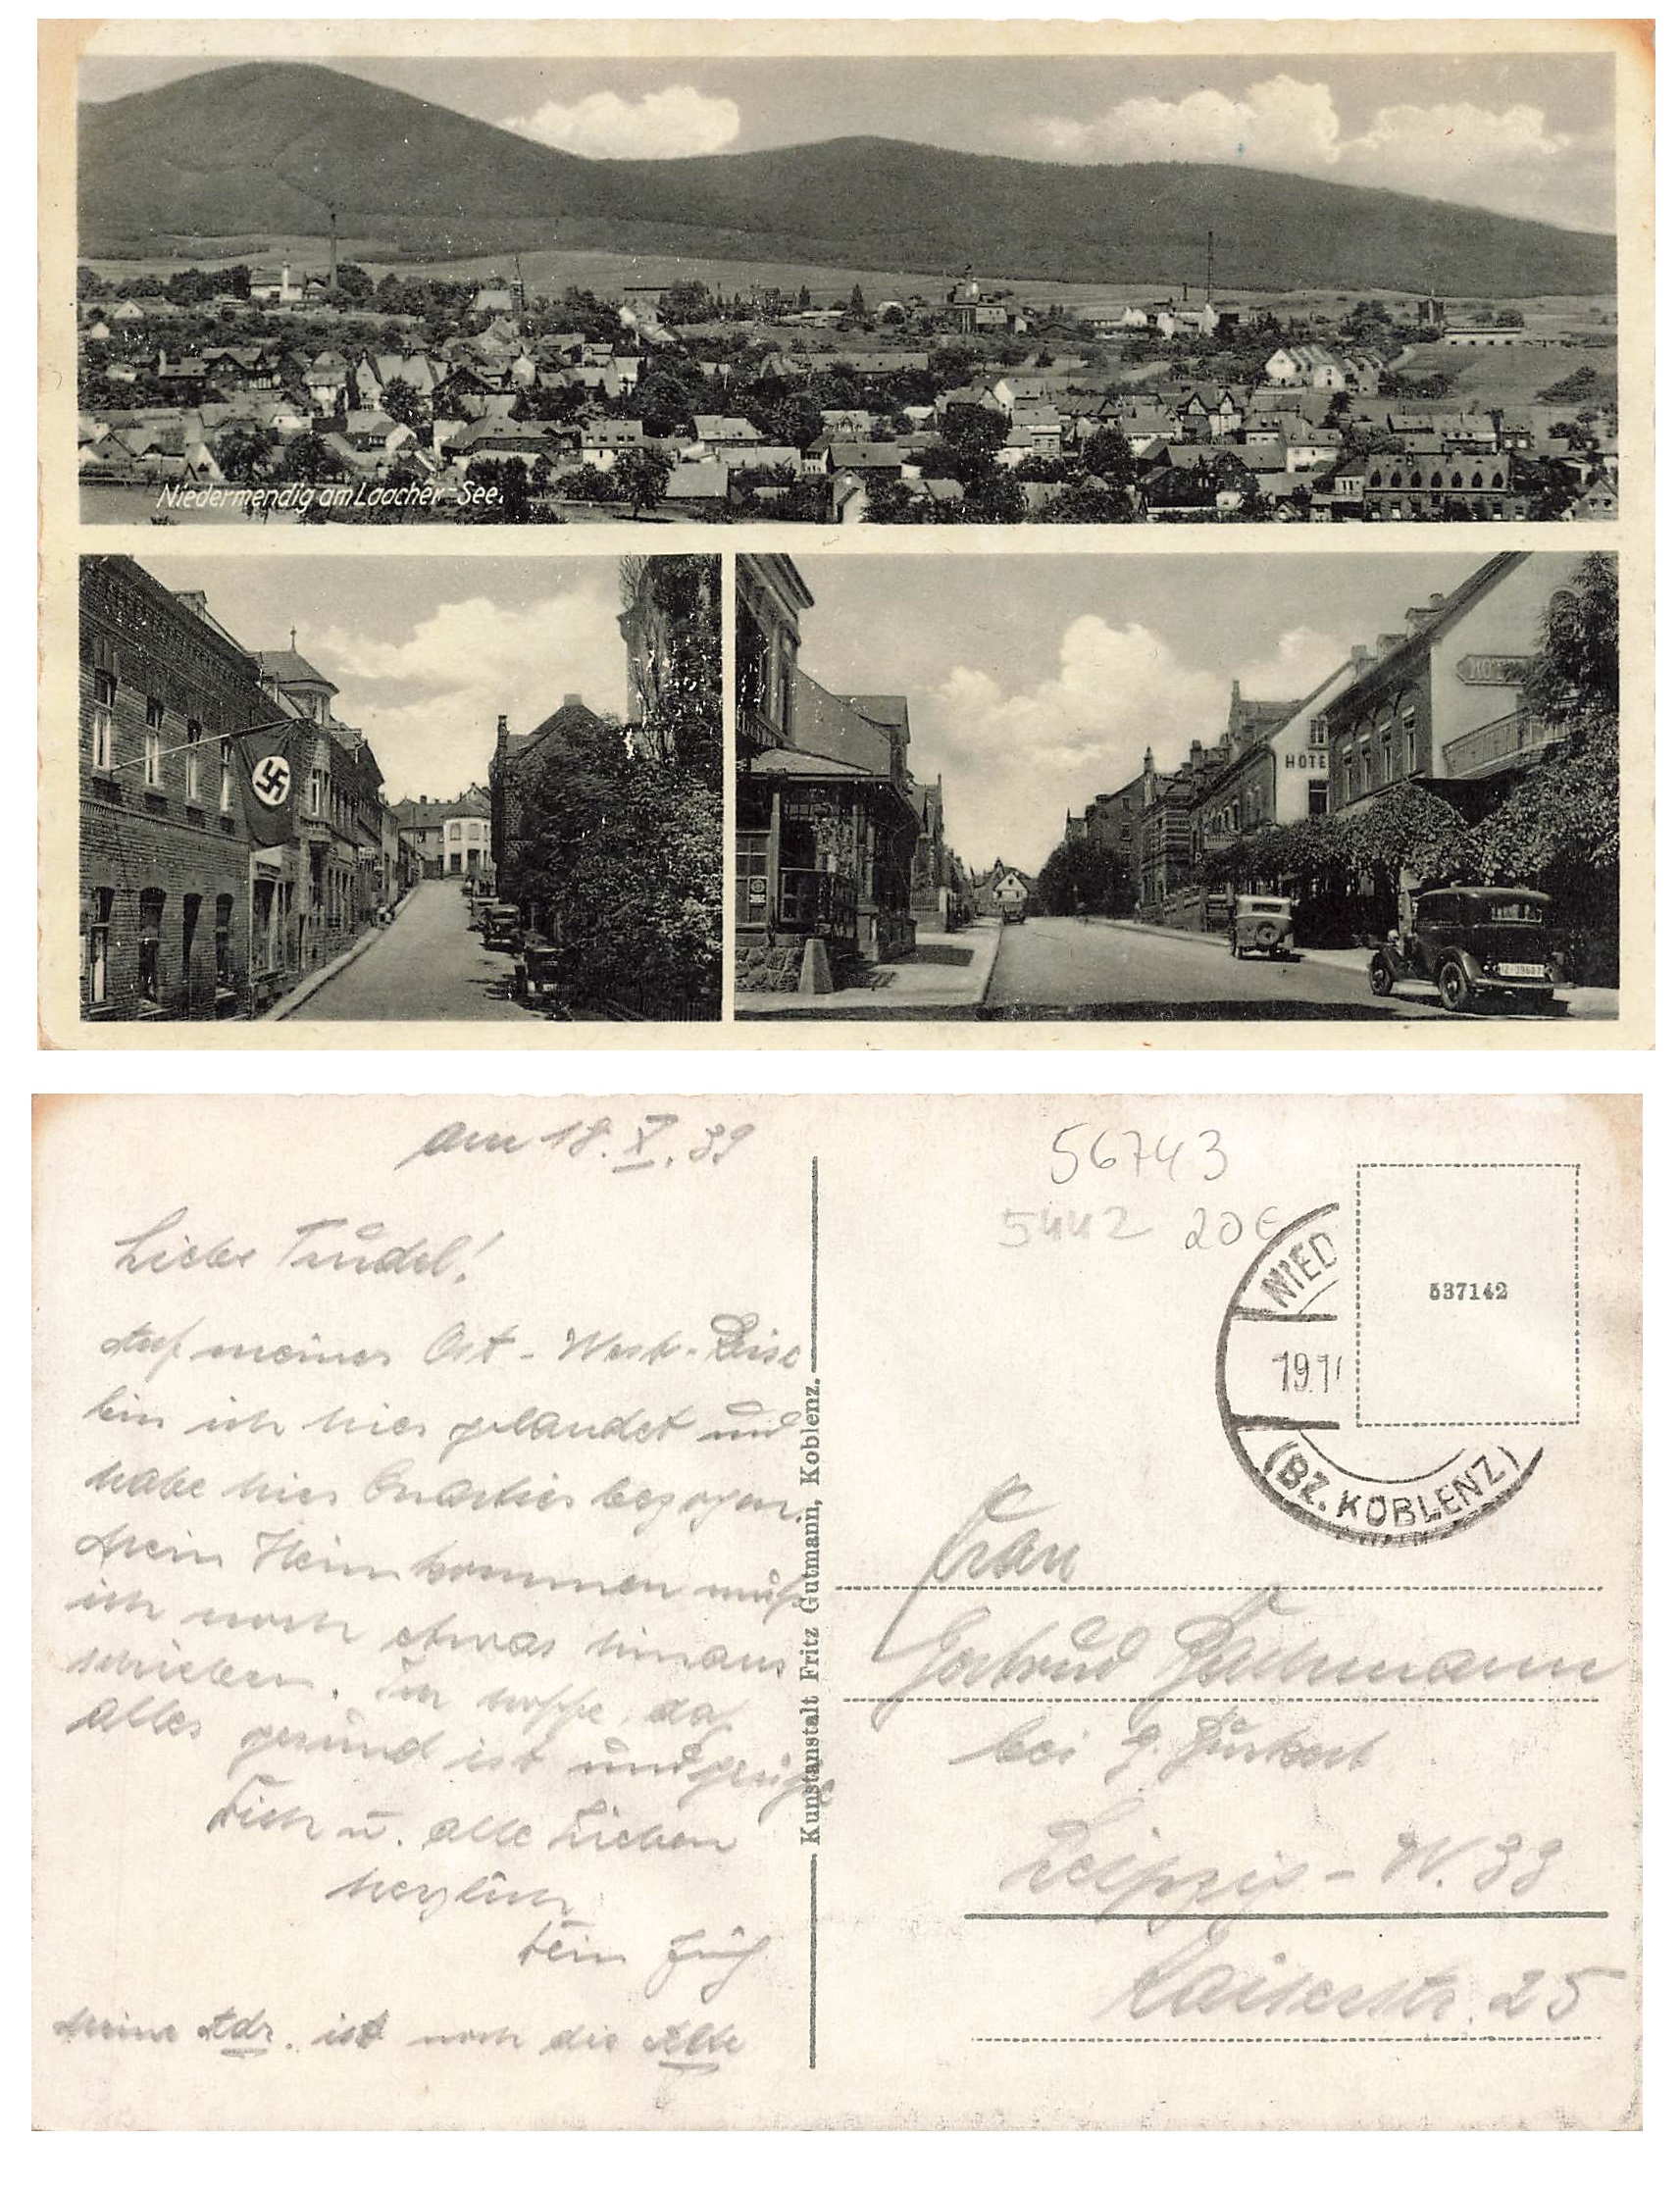 Niedermendig am Laacher-See.
HOTE
IZ-39607
am 18. X. 39
Liebe Trudel!
Auf meiner Ost-West-Reise
bin ich hier gelandet und
habe hier Quartier bezogen.
Mein Heimkommen muß
ich noch etwas hinaus
schieben. Ich hoffe, daß
alles gesund ist und grüße
Dich u. alle Lieben
herzlich
Dein
Meine Adr. ist noch die Alte
Kunstanstalt Fritz Gutmann, Koblenz.
56743
5442 20€
NIED
19.1
(BZ. KOBLENZ)
537142
Frau
Gertrud
bei G.
Leipzig-W. 33
Kaiserstr. 25